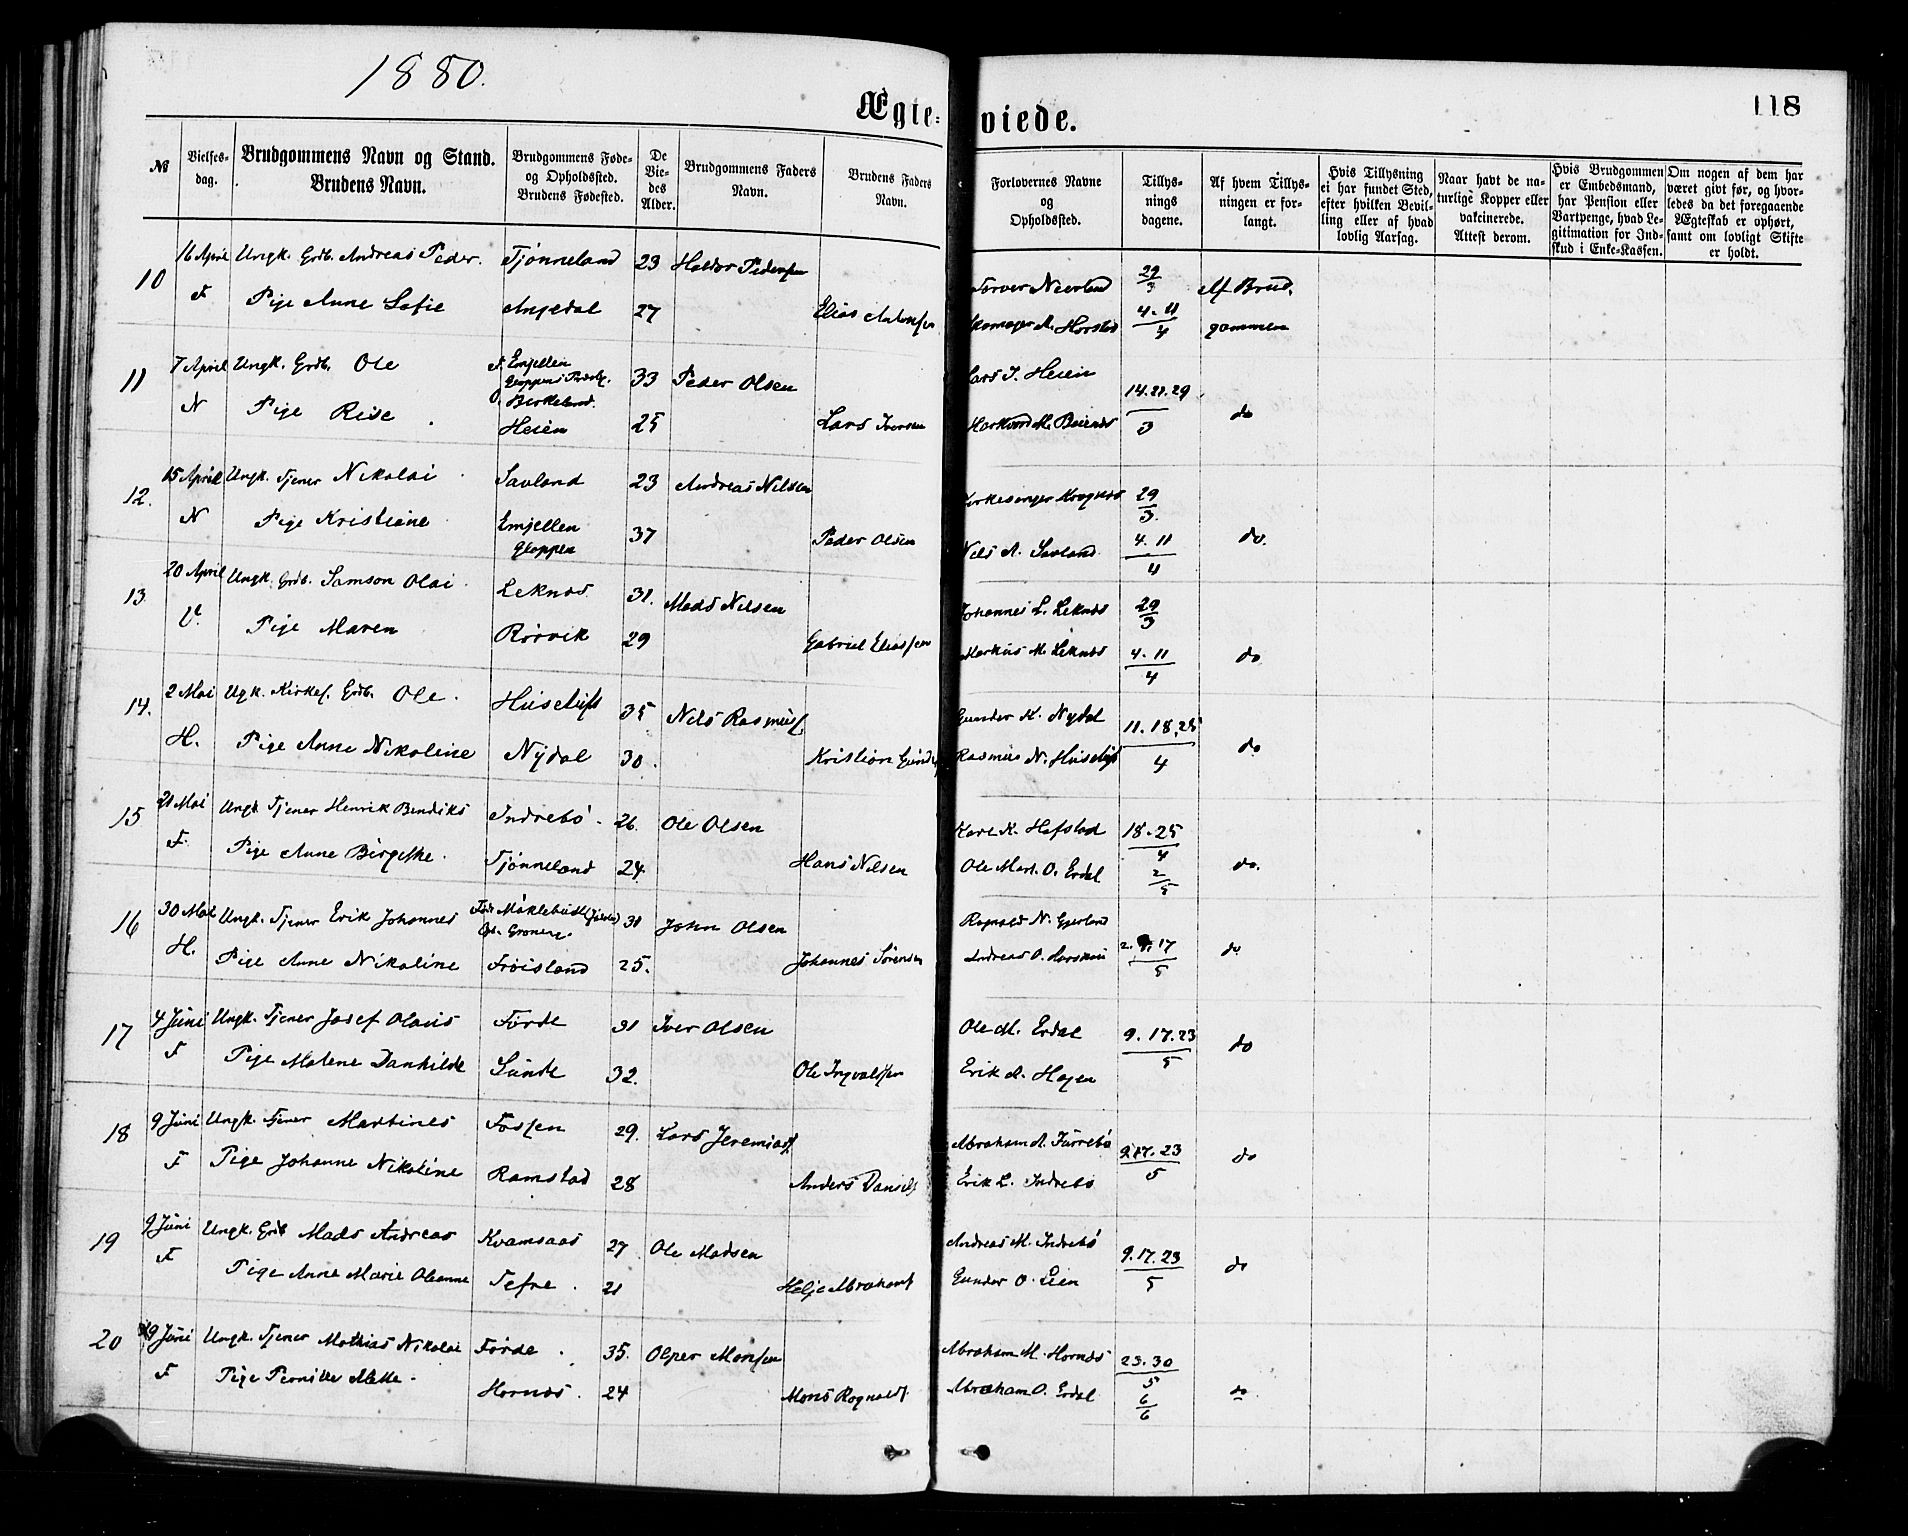 1880.
118
Ægte-viede.
№
Vielses-dag.
Brudgommens Navn og Stand. Brudens Navn.
Brudgommens Føde- og Opholdssted. Brudens Fødested.
De Vie-des Alder.
Brudgommens Faders Navn.
Brudens Faders Navn.
Forlovernes Navne og Opholdssted.
Tillys-nings dagene.
Af hvem Tillys-ningen er for-langt.
Hvis Tillysning ei har fundet Sted, efter hvilken Bevil-ling eller af hvad lovlig Aarsag.
Naar havt de na-turlige Kopper eller vakcinerede. Attest derom.
Hvis Brudgommen er Embedsmand, har Pension eller Vartpenge, hvad Le-gitimation for Ind-skud i Enke-Kassen.
Om nogen af dem har været givt før, og hvor-ledes da det foregaaende Ægteskab er ophørt, samt om lovligt Skifte er holdt.
10 16 April Ungk. Grdb. Andreas Peder. Tjønneland 23 Haldor Pedersen Neerland 29/3 Af Brud-
F Pige Anne Sofie Angedal 27 Elias 4. 11/4 gommen
11 7 April Ungk. Grdb. Ole F. Emjellen Gloppens O. Birkeland. 33 Peder Olsen Lars J. Heien 14. 21. 29
N Pige Heien 25 Lars Iversen 3 do
12. 15 April Ungk. Tjener Nikolai Savland 23 Andreas Nilsen Kirkesanger 29/3
N Pige Kristiane Emjellen Gloppen 37 Peder Olsen Nils A. Savland. 4. 11/4 do.
13 20 April Ungk. Grdb. Samson Olai Leknæs 31. Mads Nilsen Johannes L. Leknæs 29/3
V. Pige Maren Rørvik 29 Gabriel Eliassen Markus M. Leknæs 4. 11/4 do
14. 2 Mai Ugk. Kirkes. Grdb. Ole. 35 Nils Rasmuss. Gunder K. Nydal 11. 18. 25
H. Pige Anne Nikoline Nydal 30. Kristian Rasmus N. 4 do
15 21 Mai Ungk Tjener Henrik Bendiks Indrebø. 26. Ole Olsen Karl K. Hafstad 18. 25/4
F. Pige Anne Birgithe. Tjønneland 24. Hans Nilsen Ole Mart. O. Erdal 2/5 do.
16 30 Mai Ungk. Tjener Erik Johannes 31 John Olsen Ragnald N.
H. Pige Anne Nikoline Frøisland 25. Johannes Sørensen Andreas O. 2. 9. 17/5 do
17 4 Juni Ungk. Tjener Josef Olaus Førde 31 Iver Olsen Ole M. Erdal 9. 17. 23
F Pige Malene Danhilde Sunde 32. Ole Ingvaldsen Erik A. Hagen 5 do
18 9 Juni Ungk. Tjener Martines Fossen 29. Lars Jeremiass. Abraham A. 9. 17. 23
F Pige Johanne Nikoline Ramstad 28 Anders Daniels. Erik L. Indrebø 5 do
19 9 Juni Ungk. Grdb Mads Andreas Kvamsaas 27 Ole Madsen Andreas M. Indrebø 9. 17. 23
F Pige Anne Marie Oleanne Tefre. 21 Helje Abrahams. Gunder O. Lien 5 do
20 9 Juni Ungk. Tjener Mathias Nikolai Førde. 35. Olper Monsen Abraham M. Hornæs 23. 30/5
F Pige Pernille Mette. Hornæs. 24 Mons Ragnalds. Abraham O. Erdal 6/6 do